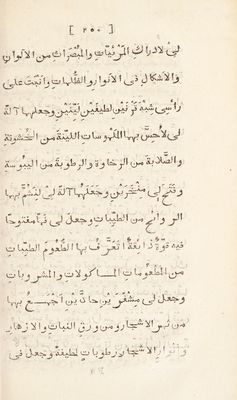 [ ٢٥٠ ]
لي لادراك المرئيات والمبصرات من الالوان
والاشكال في الانوار والظلمات وانبت على
راسي شبه قرنين لطيفين لينين وجعلهما آلة
لي لاحس بها الملموسات اللينة من الخشونة
والصلابة من الرخاوة والرطوبة من اليبوسة
وفتح لي منخرين وجعلهما آلة لي لنشم بها
الروائح من الطيبات وجعل لي فما مفتوحا
فيه قوة ذائقة اتعرف بها الطعوم الطيبات
من المطعومات الماكولات والمشروبات
وجعل لي مشفرين حادين اجمع بهما
من ثمر الاشجار ومن ورق النبات والازهار
وانوار الاشجار رطوبات لطيفة وجعل في